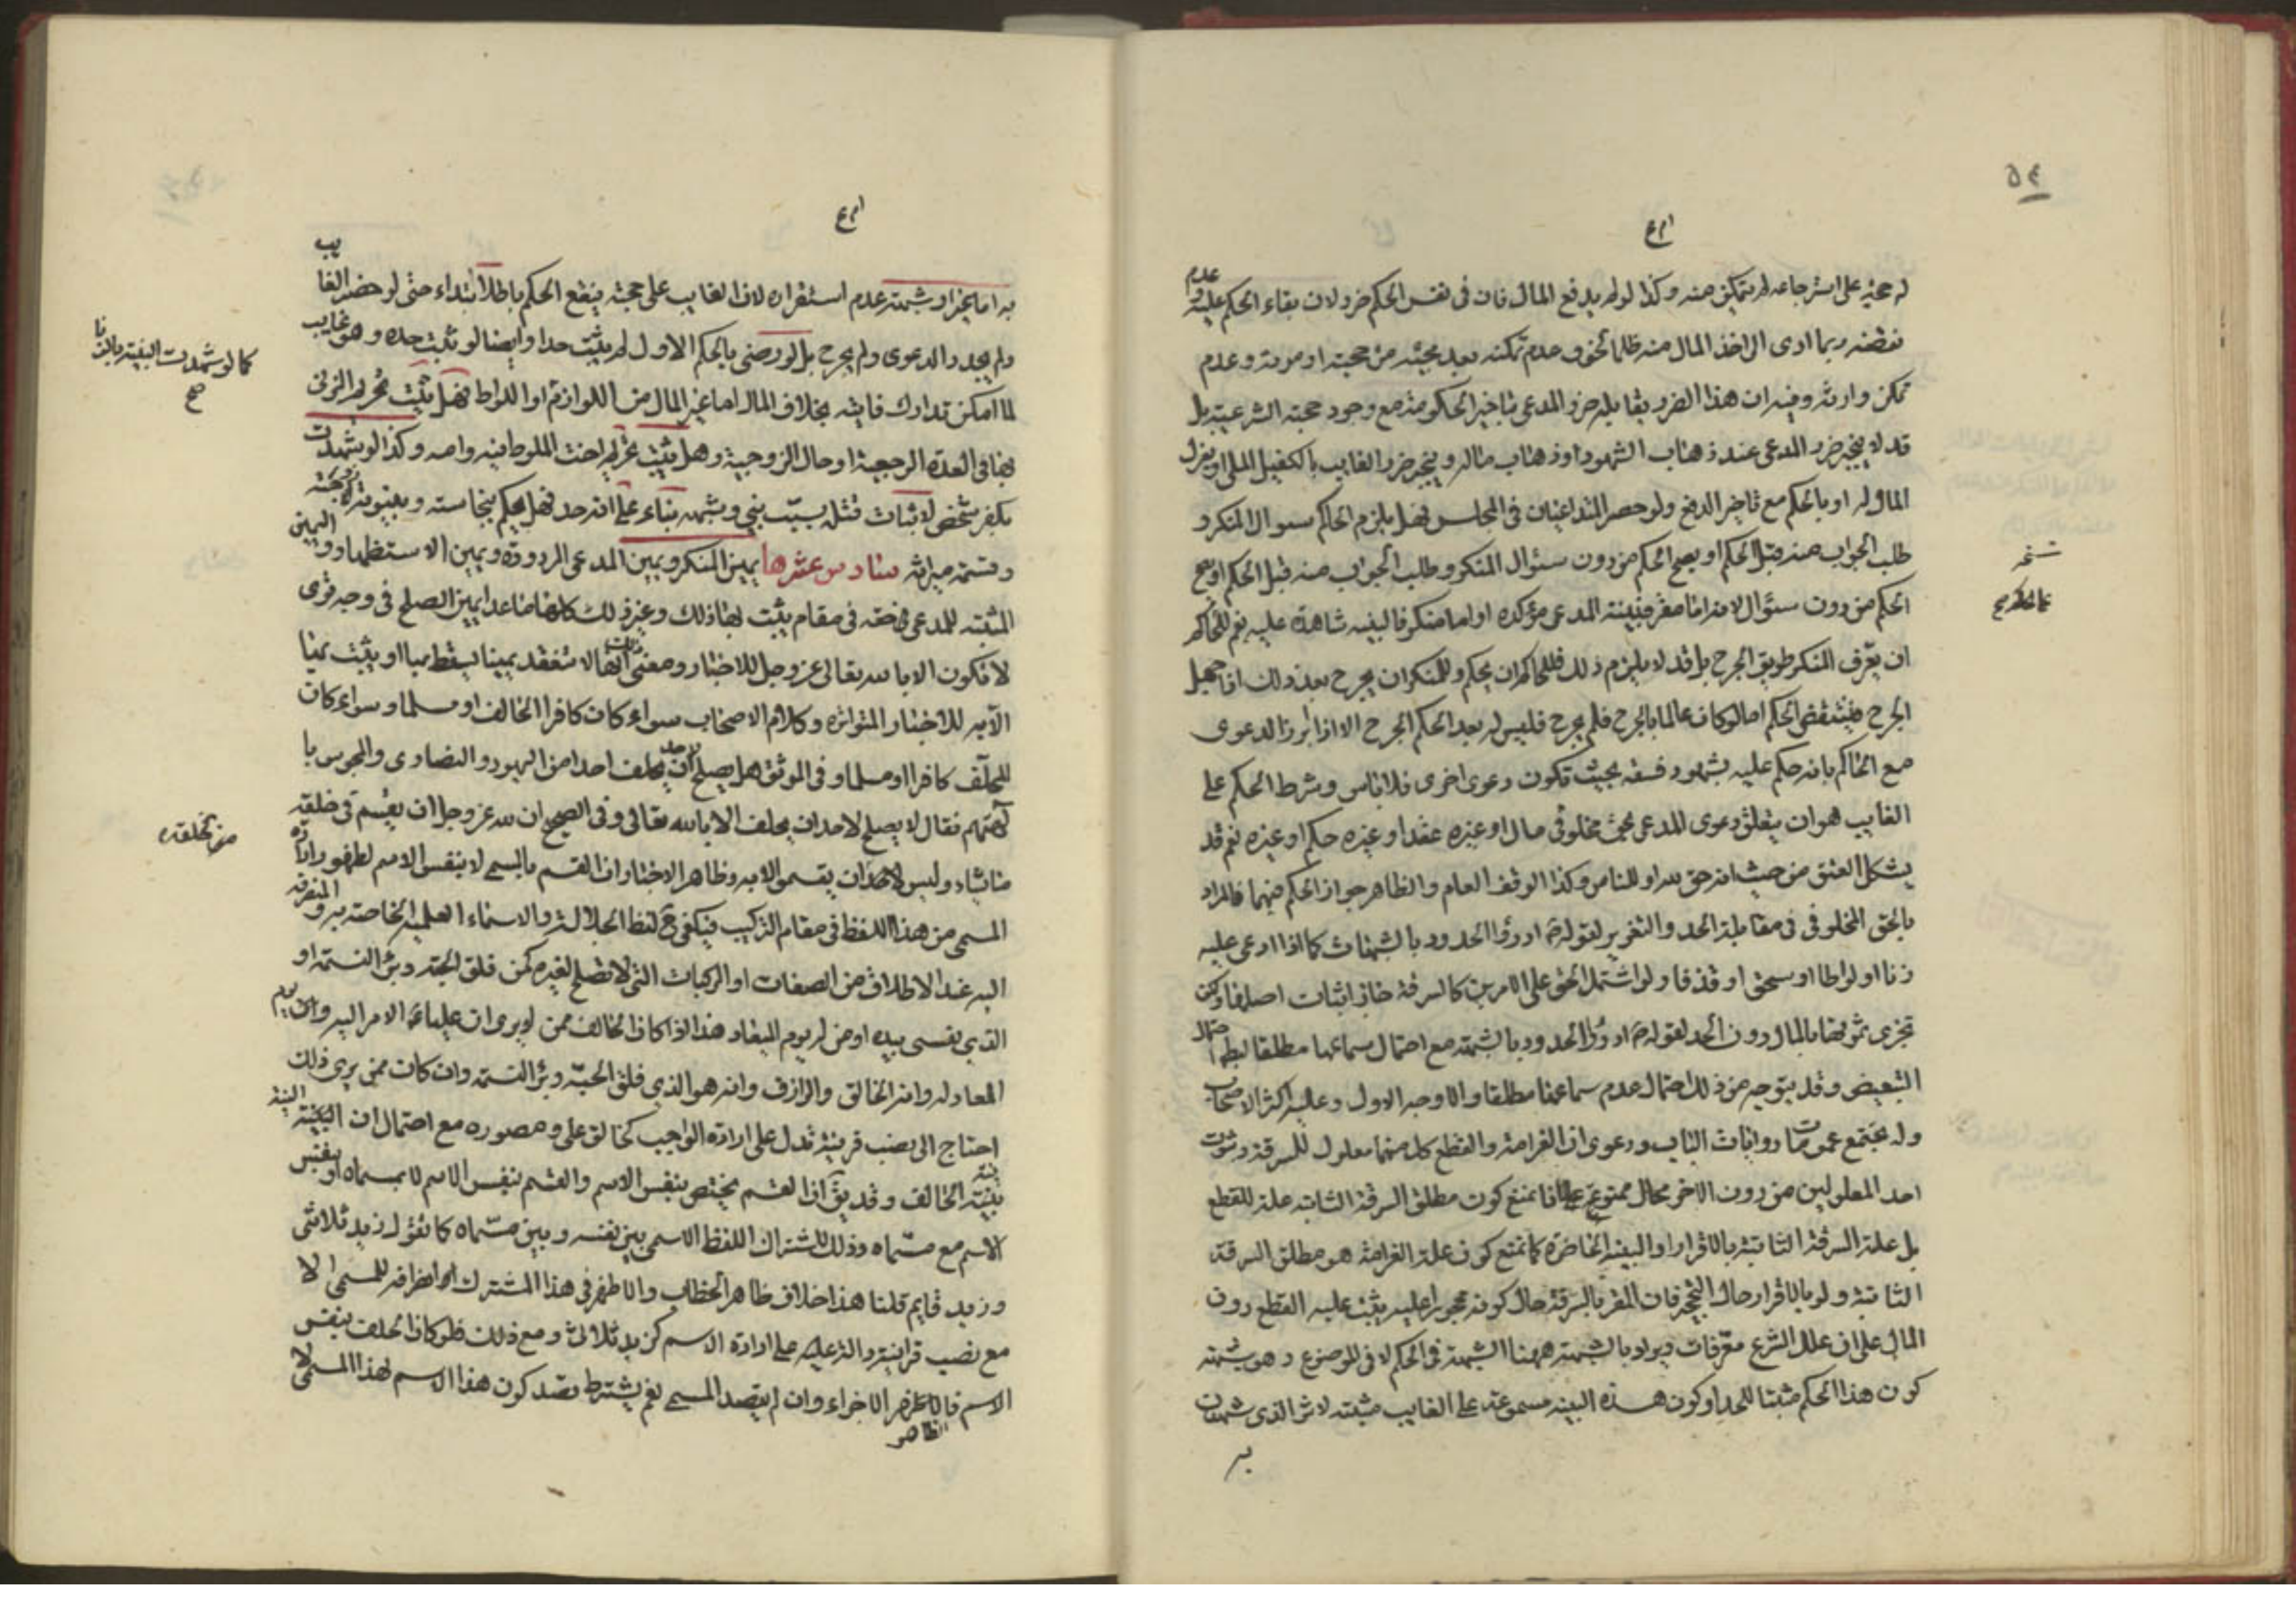 ٥٤
له حجة على استرجاعه لم يتمكن منه وكذا لو لم يدفع المال فان في نفس الحكم ضرر لان بقاء الحكم عليه وعدم
نقضه ربما ادى الى اخذ المال منه ظلما لخوف عدم تمكنه بعد مجيئه من حجته او موته وعدم
تمكن وارثه وفيه ان هذا الضرر يقابله ضرر المدعي بتاخير الحكومة مع وجود حجته الشرعية بل
قد لا ينجبر ضرر المدعي عند ذهاب الشهود او ذهاب ماله وينجبر ضرر الغايب بالكفيل الملي او بعزل
المال له او بالحكم مع تاخير الدفع ولو حضر المتداعيان في المجلس فهل يلزم الحاكم سؤال المنكر و
طلب الجواب منه قبل الحكم او يصح الحكم من دون سئوال المنكر وطلب الجواب منه قبل الحكم او يصح
نسخه
الحكم من دون سئوال لانه اما مقر فبينة المدعي مؤكده او اما منكر فالبينه شاهدة عليه نعم للحاكم
ان يعرف المنكر طريق الجرح بل قد لا يلزم ذلك فللحاكم ان يحكم وللمنكر ان يجرح بعد ذلك اذا جهل
الجرح فينتقض الحكم اما لو كان عالما بالجرح فلم يجرح فليس له بعد الحكم الجرح الا اذا ابرز الدعوى
مع الحاكم بانه حكم عليه بشهود فسقه بحيث تكون دعوى اخرى فلا باس وشرط الحكم على
الغايب هو ان يتعلق دعوى المدعي بحق مخلوق في مال او غيره عقد او غيره حكم او غيره نعم قد
يشكل العتق من حيث انه حق لله او للناس وكذا الوقف العام والظاهر جواز الحكم فيهما فالمراد
بالحق المخلوقي في مقابلة الحد والتعزير لقوله ادرؤا الحدود بالشبهات كما اذا ادعى عليه
زنا او لواطا او سحق او قذفا ولو اشتمل الحق على الامرين كالسرقة جاز اثبات اصلها ولكن
تجزى ثبوتها بالمال دون الحد لقوله ادرؤا الحدود بالشبهة مع احتمال سماعها مطلقا لبطلان
التبعيض وقد يتوجه من ذلك احتمال عدم سماعها مطلقا والاوجه الاول وعليه اكثر الاصحاب
وله يجتمع عمومات روايات الباب ودعوى ان الغرامة والقطع كلا منهما معلول للسرقة وثبوت
احد المعلولين من دون الاخر محال ممنوع فانا نمنع كون مطلق السرقة الثابته علة للقطع
بل علته السرقة الثابتة بالاقرار او البينة الحاضرة كما نمنع كون علة الغرامة هو مطلق السرقة
الثابتة ولو بالاقرار حال التحجير فان المقر بالسرقة حال كونه محجورا عليه يثبت عليه القطع دون
المال على ان علل الشرع معرفات ويراد بالشبهة ههنا الشبهة في الحكم لا في الموضوع وهو شبهة
كون هذا الحكم مثبتا للحد او كون هذه البينه مسموعة على الغايب مثبته لاثر الذي شهدت
به
به اما يجزا وشبهته عدم استقراره لان الغايب على حجته فيقع الحكم باطلا ابتداء حتى لو حضر الغايب
ولم يجدد الدعوى ولم يجرح بل لو رضى بالحكم الاول لم يثبت حدا وايضا لو ثبت حده وهو غايب
كما لو شهدت البينة بالزنا
صح
لما امكن تدارك فايته بخلاف المال اما غير المال من اللوازم او اللواط فهل يثبت تحريم الزنى
بها في العدة الرجعية او حال الزوجية وهل يثبت تحريم اخت الملوط فيه وامه وكذا لو شهدت
بكفر شخص لاثبات قتله بسبب نبي وشبهه بناء على انه حد فهل يحكم بنجاسته وبينونة زوجته
وقسمة ميراثه سادس عشرها يمين المنكر ويمين المدعي المردودة ويمين الاستظهار واليمين
المثبته للمدعي حقه في مقام يثبت بها ذلك وغير ذلك كلها ما عدا يمين الصلح في وجه قوى
لا تكون الا بالله تعالى عز وجل للاخبار ومعنى ذلك انها لا تنعقد يمينا يسقط بها او يثبت بها
الا به للاخبار المتواتره وكلام الاصحاب سواء كان كافرا الحالف او مسلما وسواء كان
المحلف كافرا او مسلما وفي الموثق هل يصلح لاحد ان يحلف احدا من اليهود والنصارى والمجوس با
لهتهم فقال لا يصلح لاحد ان يحلف الا بالله تعالى وفي الصحيح ان لله عز وجل ان يقسم في خلقه
من خلقه
ما يشاء وليس لاحد ان يقسم الا به وظاهر الاخبار ان القسم بالمسمى لا بنفس الاسم لظهور ارادة
المسمى من هذا اللفظ في مقام التركيب فيكفي لفظ الجلالة والاسماء العلمية الخاصة به والمنصرفة
اليه عند الاطلاق من الصفات او المركبات التي لا تصلح لغيره كمن فلق الحبة وبرئ النسمة او
الذي نفسي بيده او من له يوم المعاد هذا اذا كان الحالف ممن لا يرى ان عليا الامر اليه وان يوم
المعاد له وانه الخالق والرازق وانه هو الذي فلق الحبة وبرئ النسمة وان كان ممن يرى ذلك
احتاج الى نصب قرينة تدل على ارادة الواجب كخالق علي ومصوره مع احتمال ان النية
نية الحالف وقد يق ان القسم يختص بنفس الاسم والقسم بنفس الاسم لا بمسماه او بنفس
الاسم مع مسماه وذلك لاشتراك اللفظ الاسمي بين نفسه وبين مسماه كما نقول زيد ثلاثي
وزيد قايم قلنا هذا خلاف ظاهر الخطاب والاظهر في هذا المشترك انصرافه للمسمى الا
مع نصب قراينة دالة عليه على ارادة الاسم كزيد ثلاثي ومع ذلك فلو كان الحلف بنفس
الاسم فالظاهر الاجزاء وان لم يقصد المسمى نعم يشترط قصد كون هذا الاسم لهذا المسمى لا
الظاهر